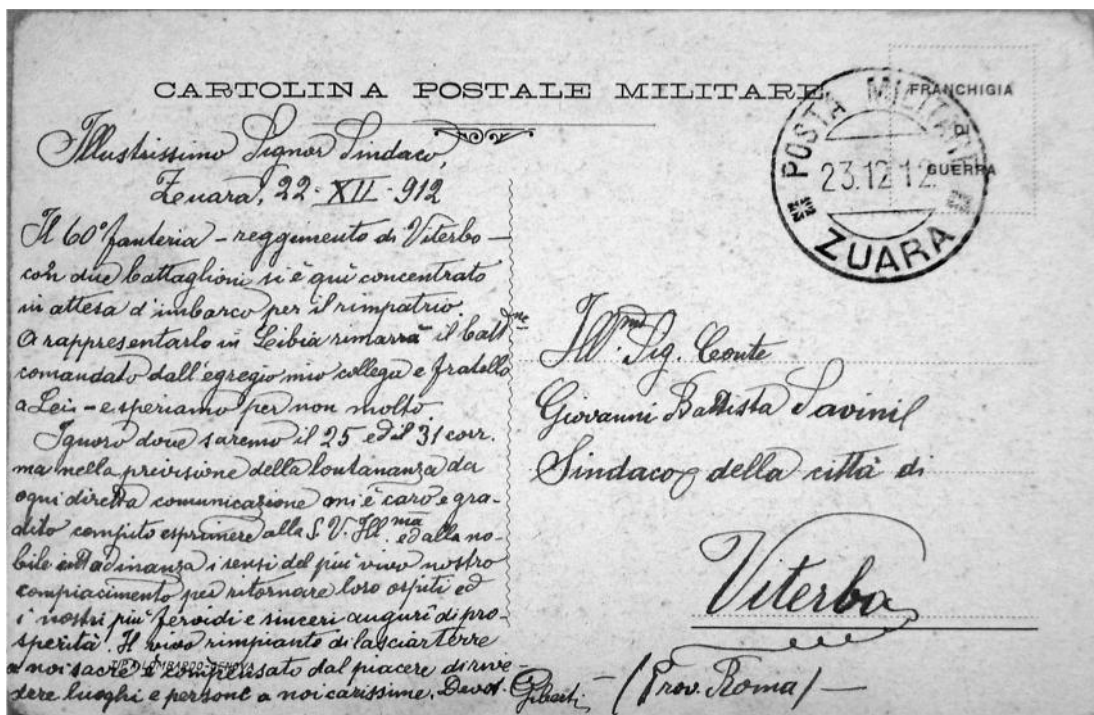 CARTOLINA POSTALE MILITARE
FRANCHIGIA
GUERRA
POSTA MILITARE
23.12.12.
ZUARA
Illustrissimo Signor Sindaco,
Zuara, 22-XII-912
Il 60° fanteria - reggimento di Viterbo -
con due battaglioni si è qui concentrato
in attesa d'imbarco per il rimpatrio.
A rappresentarlo in Libia rimarrà il battne
comandato dall'egregio mio collega e fratello
a Leis - e speriamo per non molto.
Ignoro dove saremo il 25 ed il 31 corr.
ma nella previsione della lontananza da
ogni diretta comunicazione mi è caro e gra-
dito compito esprimere alla S. V. Ill.ma ed alla no-
bile cittadinanza i sensi del più vivo nostro
compiacimento per ritornare loro ospiti ed
i nostri più fervidi e sinceri auguri di pro-
sperità. Il vivo rimpianto di lasciar terre
a noi sacre è compensato dal piacere di rive-
dere luoghi e persone a noi carissime. Devot.
LOMBARDO-GENOVA
Ill.mo Sig. Conte
Giovanni Battista
Sindaco della città di
Viterbo
(Prov. Roma)-